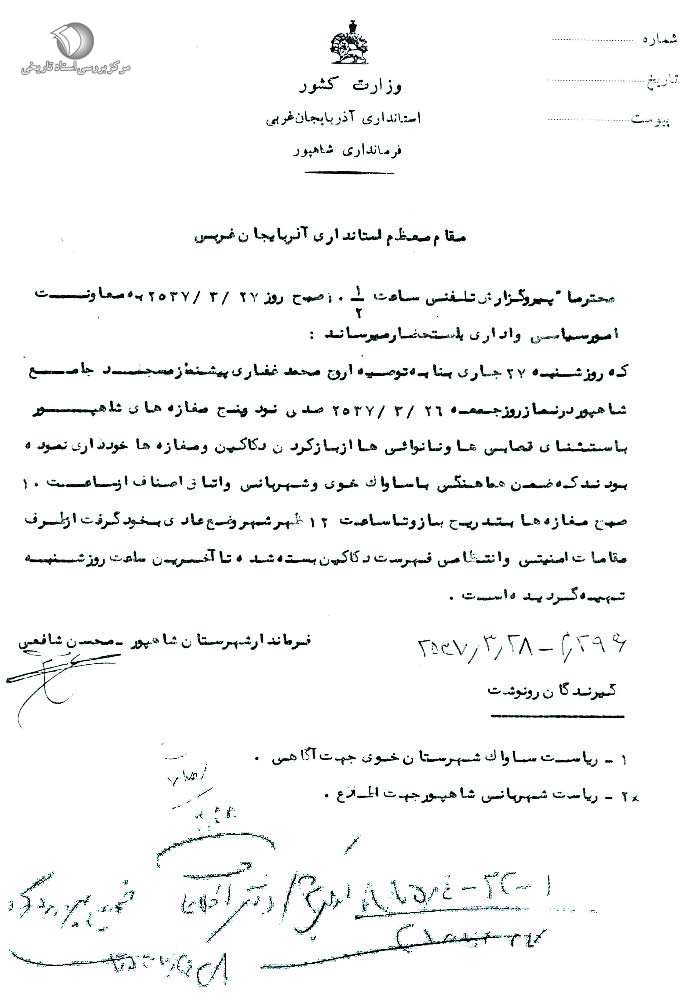 مرکز بررسی اسناد تاریخی
شماره
تاریخ
پیوست
وزارت کشور
استانداری آذربایجان غربی
فرمانداری شاهپور
مقام معظم استانداری آذربایجان غربی
محترما" پیرو گزارش تلفنی ساعت ۱/۲ ۱۰ صبح روز ۲۷ /۳ /۲۵۳۷ به معاونت
امور سیاسی و اداری باستحضار میرساند :
که روز شنبه ۲۷ جاری بنا به توصیه اروج محمد غفاری پیشنماز مسجد جامع
شاهپور در نماز روز جمعه ۲۶ /۳ /۲۵۳۷ صدی نود و پنج مغازه های شاهپور
باستثنای قصابی ها و نانوائی ها از باز کردن دکاکین و مغازه ها خودداری نموده
بودند که ضمن هماهنگی با ساواک خوی و شهربانی و اتاق اصناف از ساعت ۱۰
صبح مغازه ها بتدریج باز و تا ساعت ۱۲ ظهر شهر وضع عادی بخود گرفت از طرف
مقامات امنیتی و انتظامی فهرست دکاکین بسته شده تا آخرین ساعت روز شنبه
تهیه گردیده است .
فرماندار شهرستان شاهپور - محسن شافعی
۲۵۳۷/۳/۲۸ -
گیرندگان رونوشت
۱ - ریاست ساواک شهرستان خوی جهت آگاهی .
×۲ - ریاست شهربانی شاهپور جهت اطلاع .